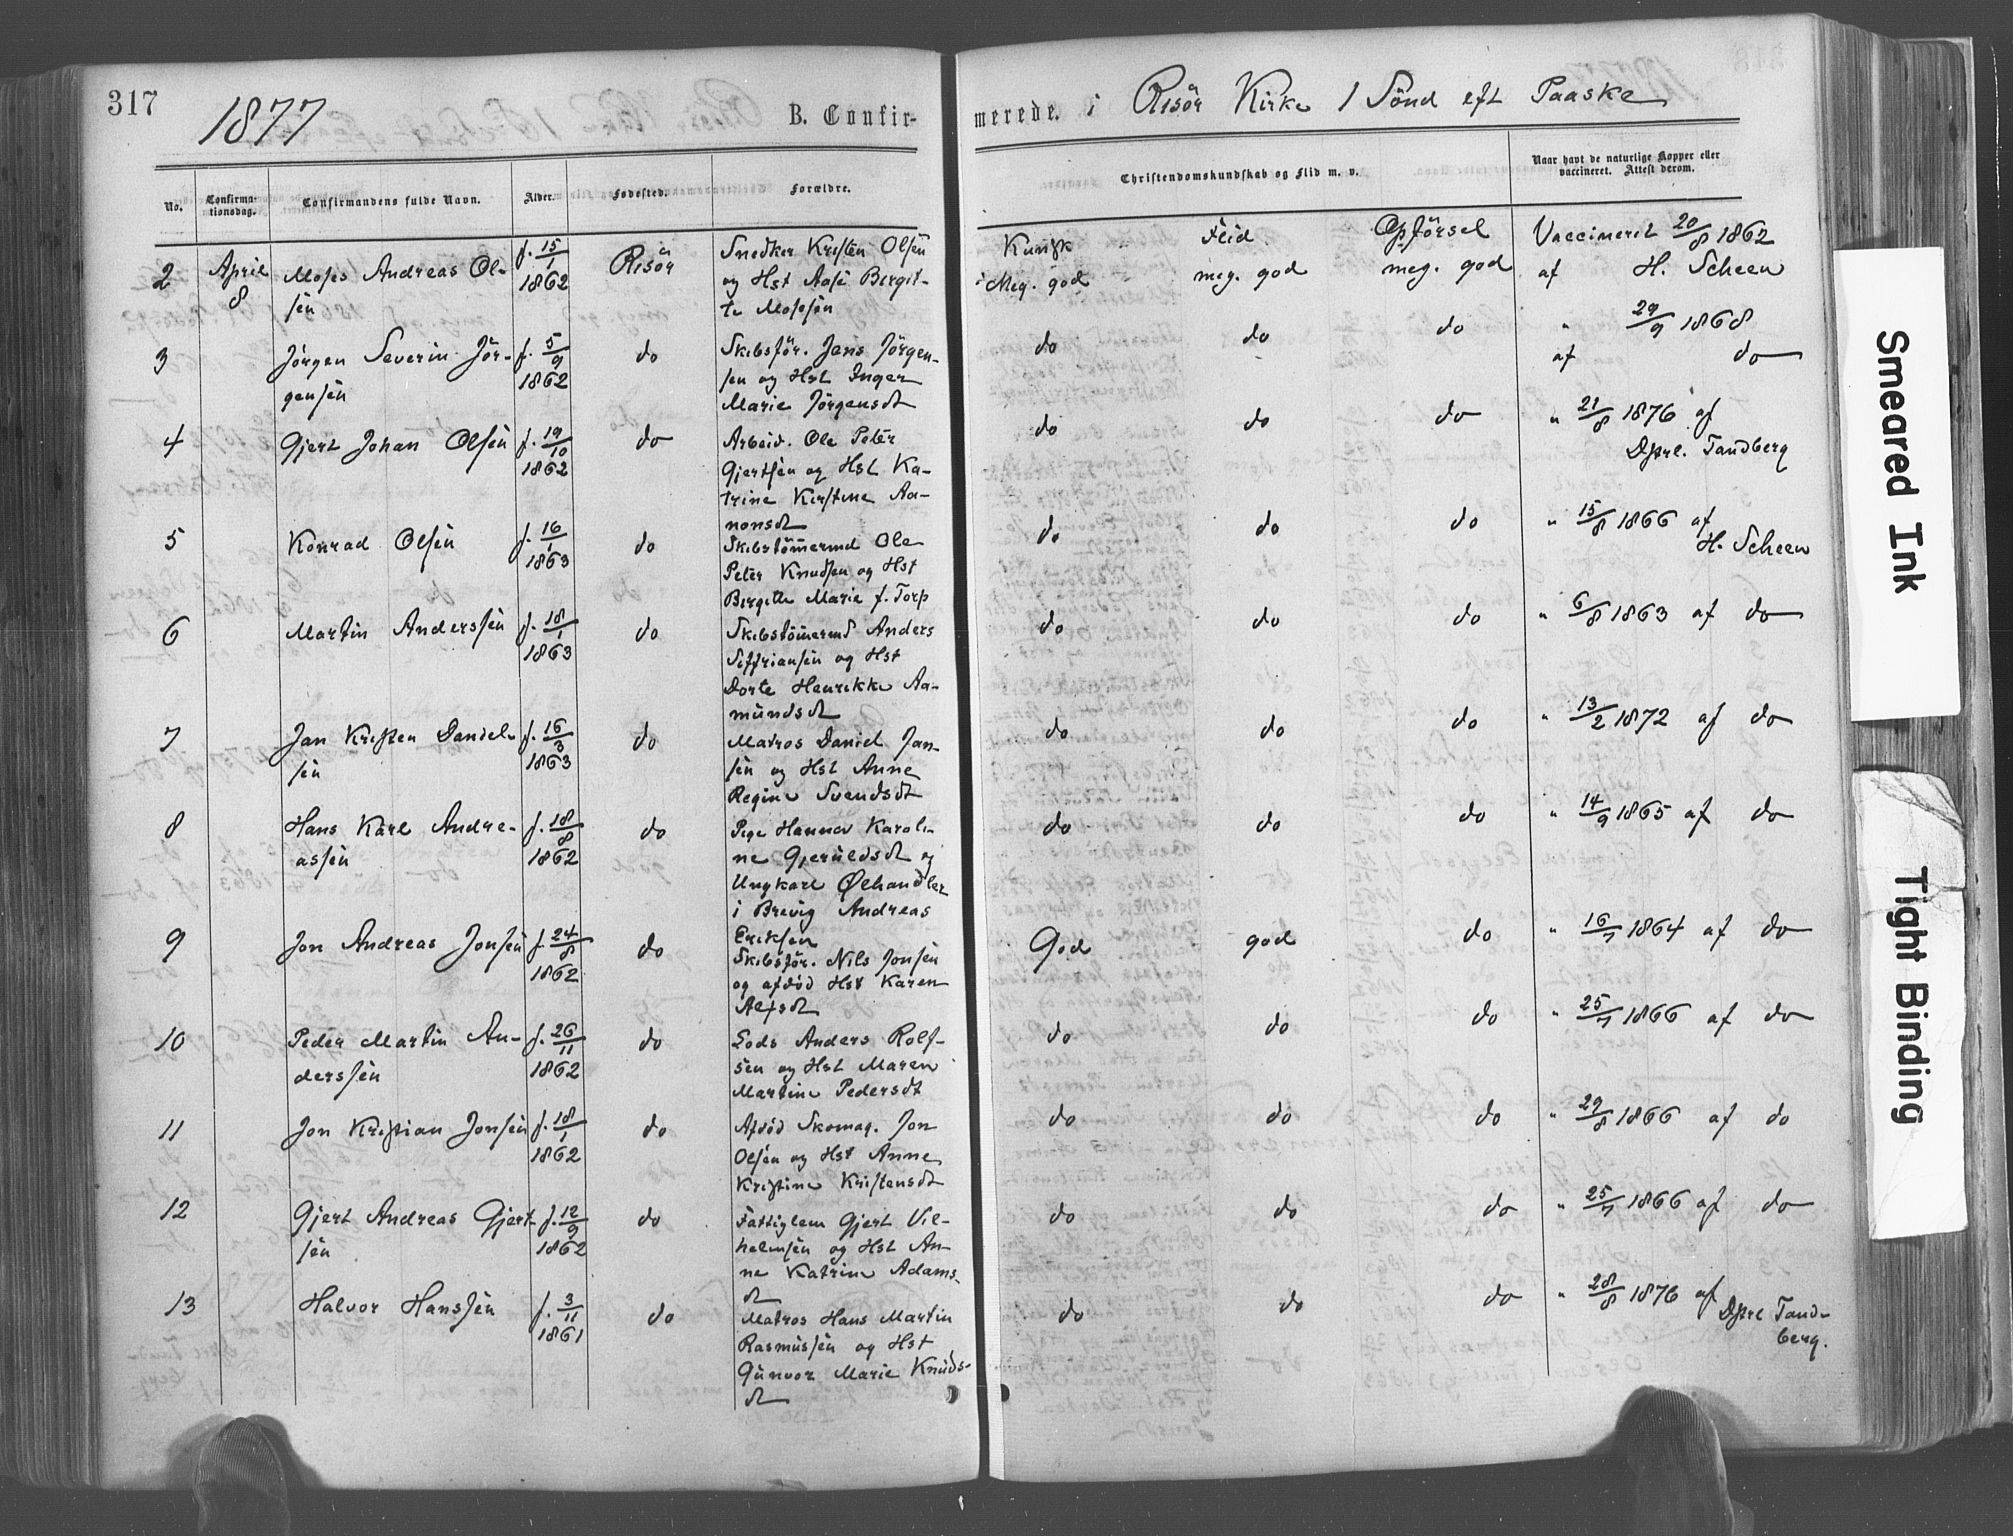 317
1877
B. Confir-
merede. i Risör Kirke 1 Sönd eft Paaske
No.
Confirma-
tionsdag.
Confirmandens fulde Navn.
Alder.
Fødested.
Forældre.
Christendomskundskab og Flid m. v.
Naar havt de naturlige Kopper eller
vaccineret. Attest derom.
Kundsk Flid Opförsel
2 April 8 Moses Andreas Ol-
sen
f. 15/1 1862
Risör
Snedker Kristen Olsen
og Hst Aase Birgit-
te Mosesen
Meg. god meg. god meg. god
Vaccineret 20/8 1862
af H. Scheen
3 Jörgen Severin Jör-
gensen
f. 5/9 1862
do
Skibsför. Jens Jörgen-
sen og Hst Inger
Marie Jörgensdt
do do do
" 29/9 1868
af do
4 Gjert Johan Olsen
f. 19/10 1862
do
Arbeid. Ole Peter
Gjertsen og Hst Ka-
trine Kirstine Aa-
nonsdt
do do do
" 21/8 1876 af
Dstrl. Tandberg
5 Konrad Olsen
f. 16/1 1863
do
Skibstömermd Ole
Peter Knudsen og Hst
Birgitte Marie f. Torp
do do do
" 15/8 1866 af
H. Scheen
6 Martin Anderssen
f. 18/1 1863
do
Skibstömermd Anders
Siffriansen og Hst
Dorte Henrikke Aa-
mundsdt
do do do
" 6/8 1863 af do
7 Jan Kristen Daniel-
sen
f. 16/3 1863
do
Matros Daniel Jan-
sen og Hst Anne
Regine Svendsdt
do do do
" 13/2 1872 af do
8 Hans Karl Andre-
assen
f. 18/8 1862
do
Pige Hanna Karoli-
ne Gjeruldsdt og
Ungkarl Ølhandler
i Brevig Andreas
Eriksen
do do do
" 14/9 1865 af do
9 Jon Andreas Jonsen
f. 24/8 1862
do
Skibsför. Nils Jonsen
og afdöd Hst Karen
Alfsdt
God god do
" 16/7 1864 af do
10 Peder Martin An-
derssen
f. 26/11 1862
do
Lods Anders Rolf-
sen og Hst Maren
Martine Pedersdt
do do do
" 25/7 1866 af do
11 Jon Kristian Jonsen
f. 18/1 1862
do
Afdöd Skomag. Jon
Olsen og Hst Anne
Kristine Kristensdt
do do do
" 29/8 1866 af do
12 Gjert Andreas Gjert
sen
f. 12/9 1862
do
Fattiglem Gjert Vil-
helmsen og Hst An-
ne Katrine Adams-
dt
do do do
" 25/7 1866 af do
13 Halvor Hanssen
f. 3/11 1861
do
Matros Hans Martin
Rasmussen og Hst
Gunvor Marie Knuds-
dt
do do do
" 28/8 1876 af
Dstrl Tand-
berg.
Smeared Ink
Tight Binding